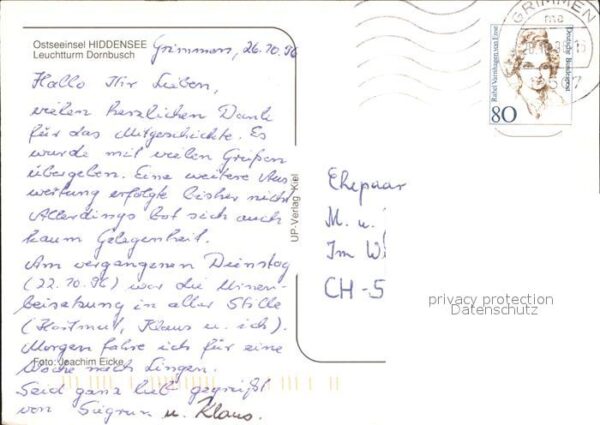 Ostseeinsel HIDDENSEE
Leuchtturm Dornbusch
Grimmen, 26.10.96
Hallo Ihr Lieben,
vielen herzlichen Dank
für das Mitgeschickte. Es
wurde mit vielen Grüßen
übergeben. Eine weitere Aus
wertung erfolgte bisher nicht
Allerdings bot sich auch
kaum Gelegenheit.
Am vergangenen Dienstag
(22.10.96) war die Urnen-
beisetzung in aller Stille
(Hartmut, Klaus u. ich).
Morgen fahre ich für eine
Foto: Joachim Eicke
Woche nach Lingen.
Seid ganz lieb gegrüßt
von Sigrun u. Klaus.
UP-Verlag Kiel
GRIMMEN
Rahel Varnhagen von Ense
Deutsche Bundespost
80
Ehepaar
M. u.
Im W
CH-5
privacy protection
Datenschutz